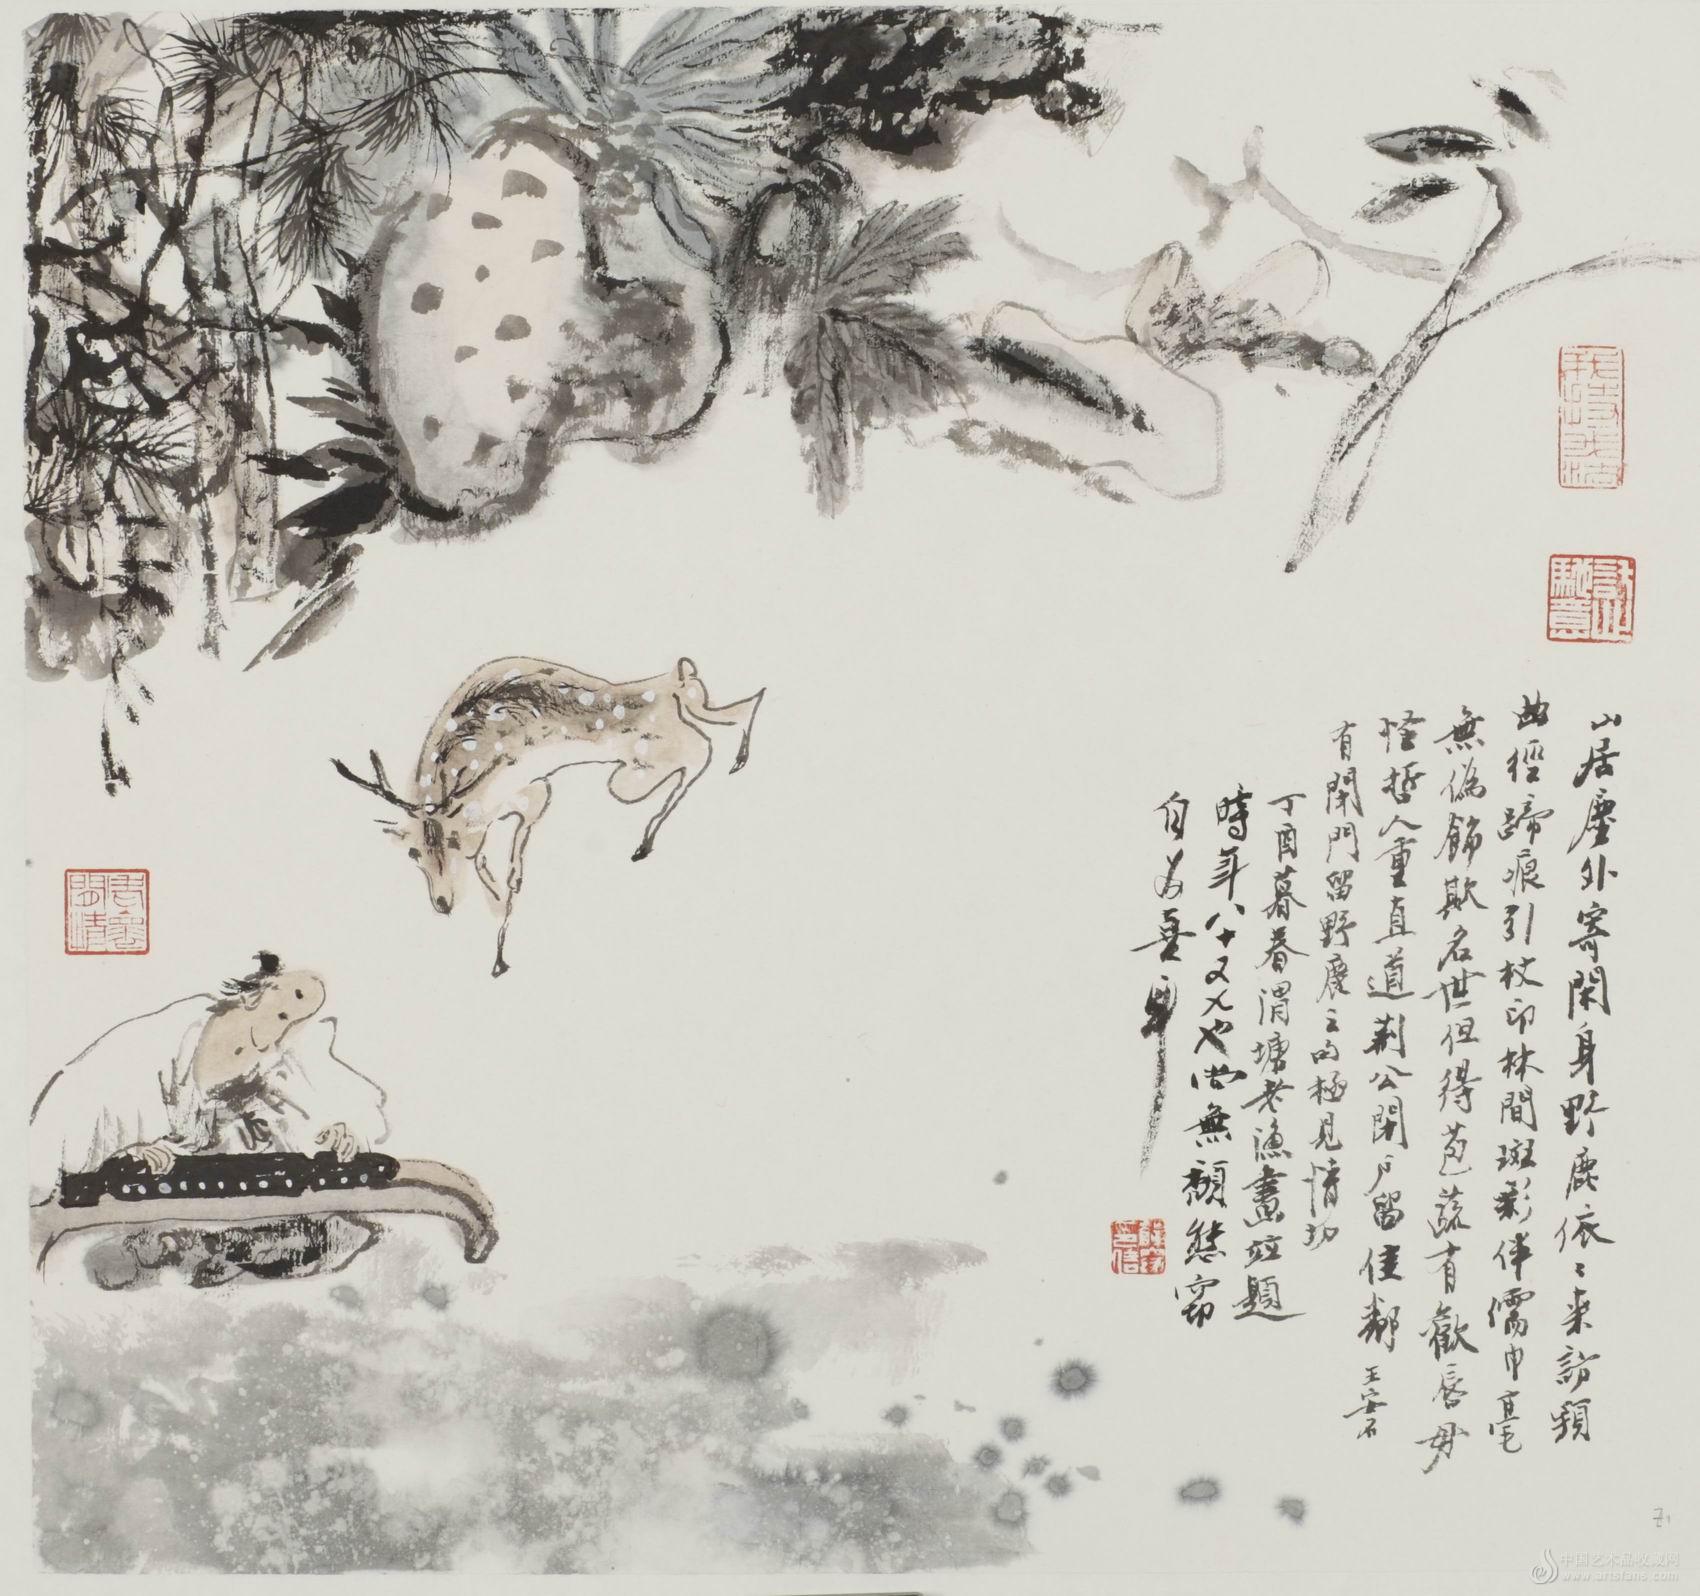 山居塵外寄閑身野鹿依〻來訪頻
曲徑蹄痕引杖印林間斑彩伴儒巾毫
無偽飾欺名世但得苞蔬有歡唇毋
怪哲人重直道荊公閉戶留佳鄰 王安石
有閉門留野鹿之句極見情切
丁酉暮春渭塘老漁畫並題
時年八十又也尚無頹態竊
自為喜耳
中国艺术品收藏网
www.artsfans.com